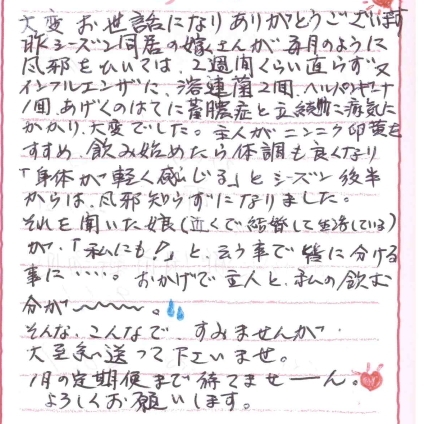 大変お世話になりありがとうございます
昨シーズン同居の嫁さんが毎月のように
風邪をひいては、2週間くらい直らず又
インフルエンザに、溶連菌2回、ヘルパンギーナ
1回、あげくのはてに蓄膿症と立続に病気に
かかり、大変でした。主人がニンニク卵黄を
すすめ、飲み始めたら体調も良くなり
「身体が軽く感じる」とシーズン後半
からは、風邪知らずになりました。
それを聞いた娘(近くで結婚して生活している)
が、「私にも!」と、云う事で皆に分ける
事に‥‥。おかげで主人と、私の飲む
分が〜〜〜。
そんな、こんなで、すみませんが、
大至急送って下さいませ。
1月の定期便まで待てませーん。
よろしくお願いします。